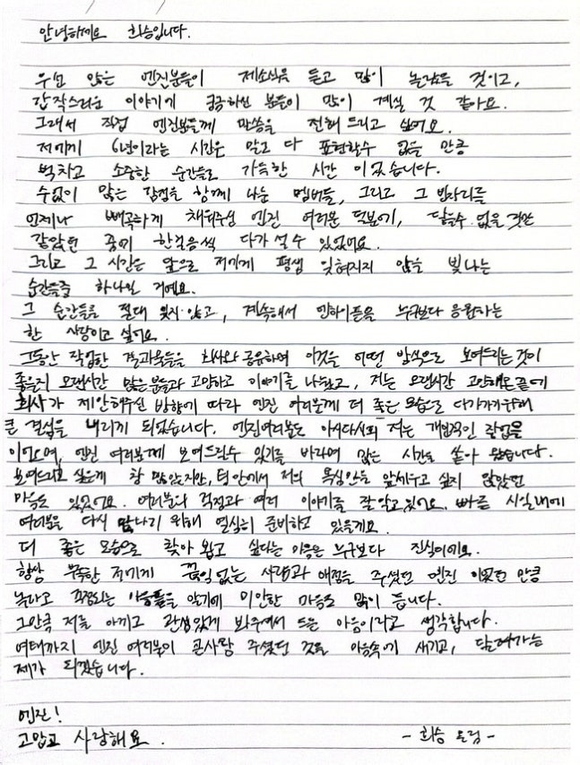 안녕하세요 희승입니다.
우선 많은 엔진분들이 제소식을 듣고 많이 놀랐을 것이고,
갑작스러운 이야기에 궁금하신 분들이 많이 계실 것 같아요.
그래서 직접 엔진분들께 말씀을 전해 드리고 싶어요.
저에게 6년이라는 시간은 말로 다 표현할수 없을 만큼
벅차고 소중한 순간들로 가득한 시간 이었습니다.
수없이 많은 감정을 함께 나눈 멤버들, 그리고 그 빈자리를
언제나 빼곡하게 채워주신 엔진 여러분 덕분에, 닿을수 없을 것만
같았던 중에 한걸음씩 다가 설 수 있었어요.
그리고 그 시간은 앞으로 저에게 평생 잊혀지지 않을 빛나는
순간들중 하나일 거예요.
그 순간들을 절대 잊지 않고, 계속해서 엔하이픈을 누구보다 응원하는
한 사람이고 싶어요.
그동안 작업한 결과물들을 회사와 공유하며 이것을 어떤 방식으로 보여드리는것이
좋을지 오랜시간 많은분들과 고민하고 이야기를 나눴고, 저는 오랜시간 고민해본끝에
회사가 제안해주신 방향에 따라 엔진 여러분께 더 좋은 모습으로 다가가기위해
큰 결심을 내리게 되었습니다. 엔진여러분도 아시다시피 저는 개인적인 작업을
이어오며, 엔진 여러분께 보여드릴수 있기를 바라며 많은 시간을 쏟아 왔습니다.
보여드리고 싶은게 참 많았지만, 팀 안에서 저의 욕심만을 앞세우고 싶지 않았던
마음도 있었어요. 여러분의 걱정과 여러 이야기를 잘 알고있어요. 빠른 시일내에
여러분을 다시 만나기 위해 열심히 준비하고 있을게요.
더 좋은 모습으로 찾아 뵙고 싶다는 마음은 누구보다 진심이에요.
항상 부족한 저에게 끊임없는 사랑과 애정을 주셨던 엔진 이었던 만큼
놀라고 걱정되는 마음들을 알기에 미안한 마음도 많이 듭니다.
그만큼 저를 아끼고 관심있게 봐주셔서 드는 마음이라고 생각합니다.
여태까지 엔진 여러분이 큰사랑 주셨던 것을 마음속에 새기고, 달려가는
제가 되겠습니다.
엔진!
고맙고 사랑해요.
- 희승 드림 -